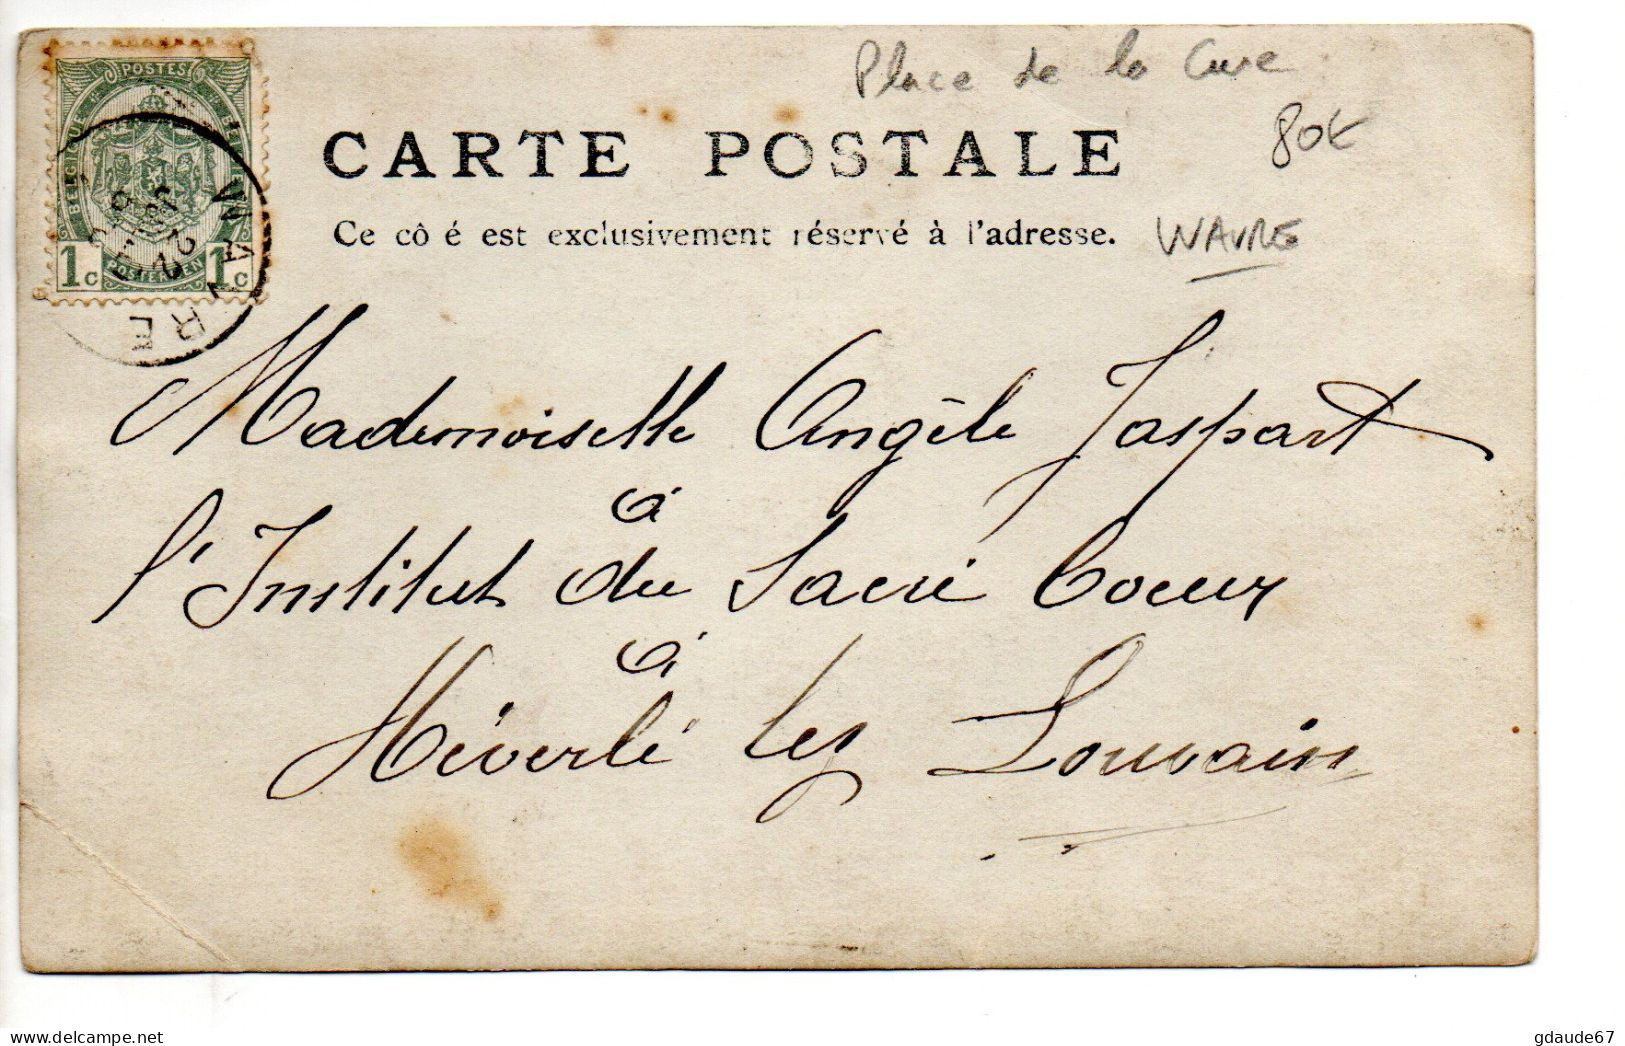 Place de la Cure
80€
CARTE POSTALE
Ce cô é est exclusivement réservé à l'adresse.
WAVRE
POSTES
BELGIQUE
1c POSTERIJEN 1c
WAVRE
Mademoiselle Angèle Jaspart
à
l'Institut du Sacré Coeur
à
Héverlé lez Louvain
delcampe.net
gdaude67